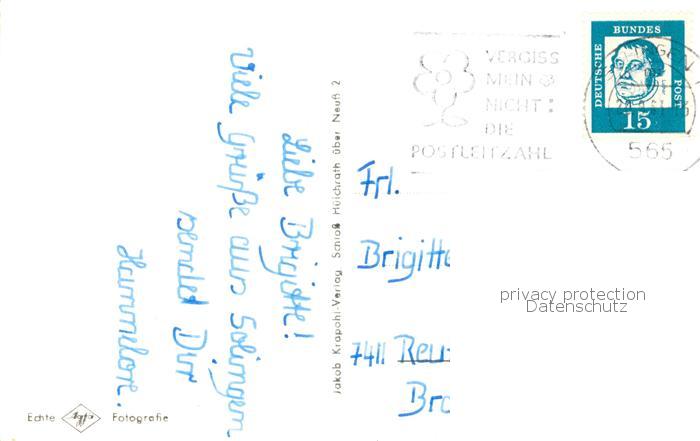 Liebe Brigitte!
Viele Grüße aus Solingen
sendet Dir
Hannelore.
Echte Agfa Fotografie
Jakob Krapohl-Verlag Schloß Hülchrath über Neuß 2
VERGISS
MEIN
NICHT:
DIE
POSTLEITZAHL
DEUTSCHE
BUNDES
POST
15
565
Frl.
Brigitte
7411 Reu
Bro
privacy protection
Datenschutz